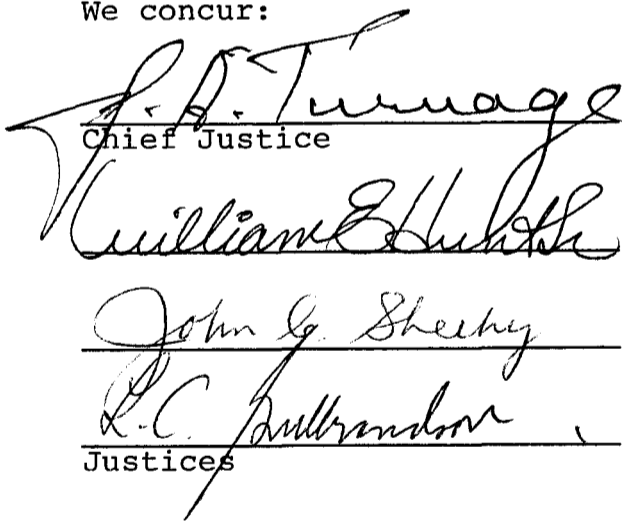 We concur:
J. A. Turnage
Chief Justice
William E Hunth
John C Sheehy
L.C. Gulbrandson
Justices